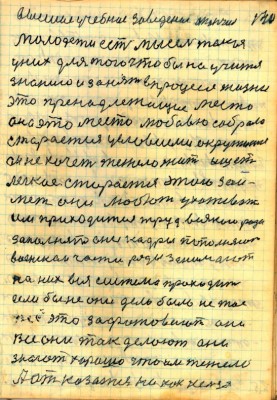 Высшие учебные заведения окончил 170
Молодежи есть мысль такая
у них для того чтобы научится
знанию и занять в процесе жизни
это пренадлежащие место
она это место любовью собрала
старается условиями окружится
он не хочет тежело жит ищет
легкое старается этого зай
мет они любют ухаживат
им приходится труд всякого рода
заполнять они кадры пополняют
воинския части ряды занимают
на них вся система приходит
если бы не они дело было не тае
всё это зафотовают они
все они так делают они
знают хорошо что им тежело
А отказатся ни как нельзя